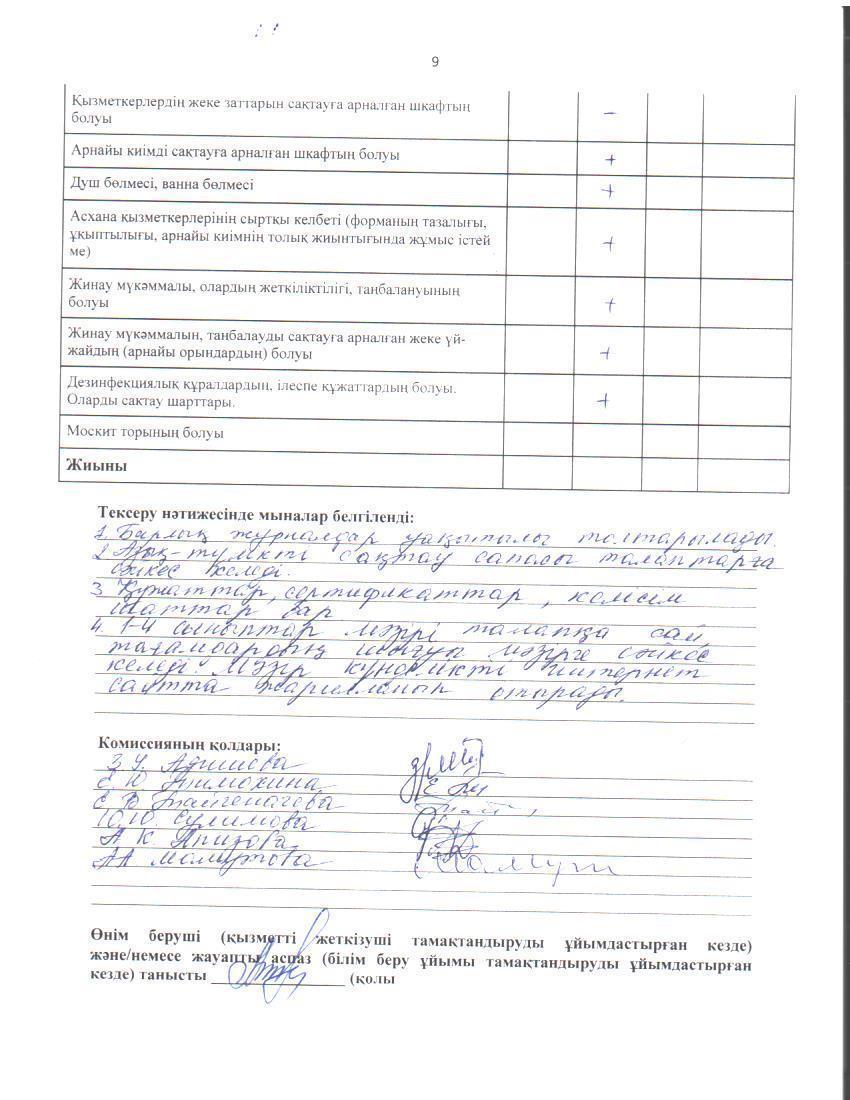 9
Қызметкерлердің жеке заттарын сақтауға арналған шкафтың
болуы
-
Арнайы киімді сақтауға арналған шкафтың болуы
+
Душ бөлмесі, ванна бөлмесі
+
Асхана қызметкерлерінің сыртқы келбеті (форманың тазалығы,
ұқыптылығы, арнайы киімнің толық жиынтығында жұмыс істей
ме)
+
Жинау мүкәммалы, олардың жеткіліктілігі, таңбалануының
болуы
+
Жинау мүкәммалын, танбалауды сақтауға арналған жеке үй-
жайдың (арнайы орындардың) болуы
+
Дезинфекциялық құралдардың, ілеспе құжаттардың болуы.
Оларды сақтау шарттары.
+
Москит торының болуы
Жиыны
Тексеру нәтижесінде мыналар белгіленді:
1. Барлық журналдар уақытылы толтырылады.
2 Азық-түлікті сақтау сапалы талаптарға
сәйкес келеді.
3 Құжаттар, сертификаттар,
бар
4. 1-4 сыныптар мәзірі талапқа сай
тағамдардың шығуы мәзірге сәйкес
келеді. Мәзір күнделікті интернет
сайтта жарияланып отырады.
Комиссияның қолдары:
З. У.
Е. Ю. Тимохина
Е В
Ю.Ю. Сулимова
А К.
АА
Өнім беруші (қызметті жеткізуші тамақтандыруды ұйымдастырған кезде)
және/немесе жауапты аспаз (білім беру ұйымы тамақтандыруды ұйымдастырған
кезде) танысты (қолы